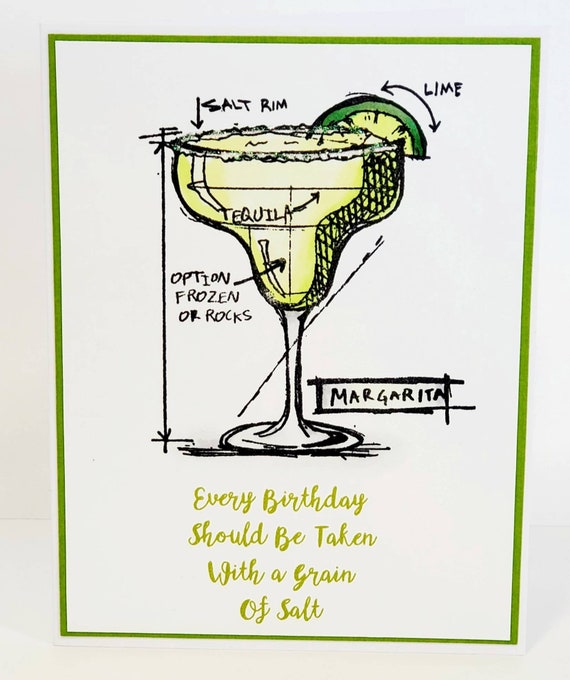 SALT RIM
LIME
TEQUILA
OPTION
FROZEN
OR ROCKS
MARGARITA
Every Birthday
Should Be Taken
With a Grain
Of Salt